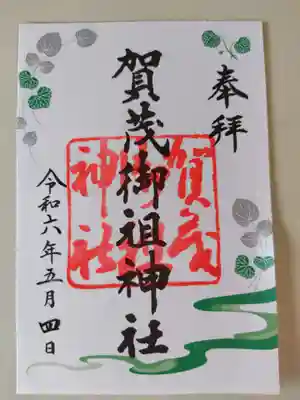 奉拝
賀茂御祖神社
令和六年五月四日